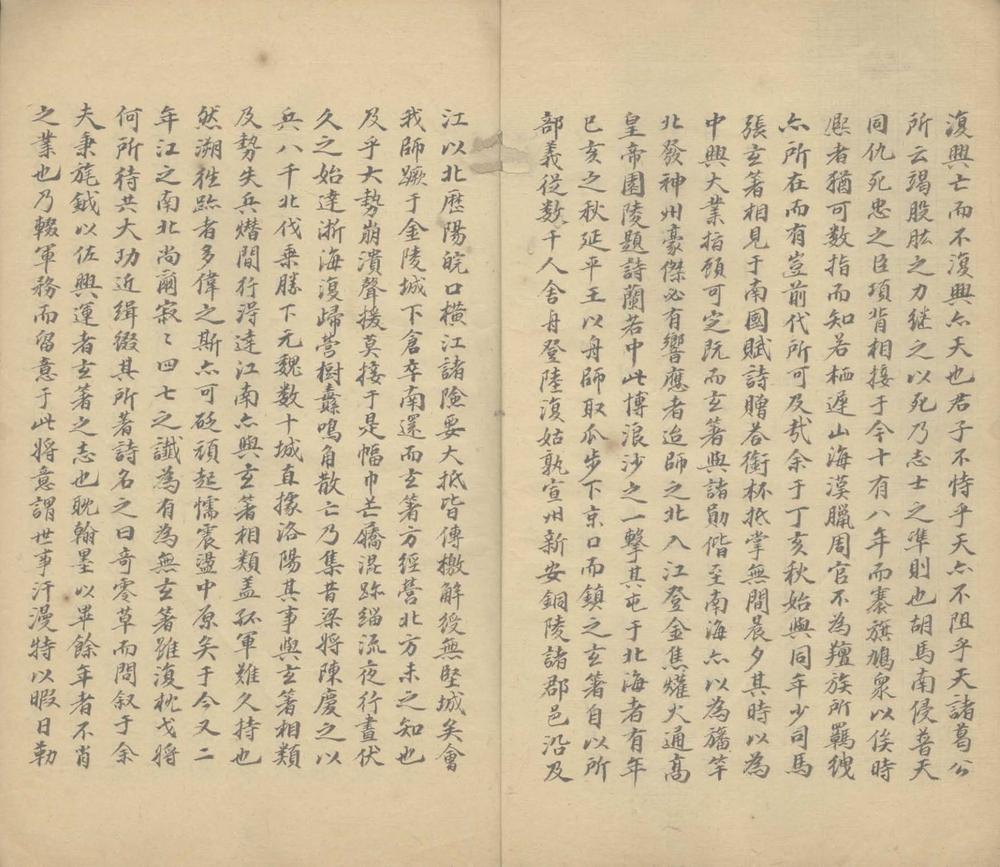 復興亡而不復興亦天也君子不恃乎天亦不阻乎天諸葛公
所云竭股肱之力继之以死乃志士之準則也胡馬南侵普天
同仇死忠之臣項背相接于今十有八年而搴旗鳩衆以俟時
熈者猶可数指而知若栖遲山海漢臘周官不為羶族所羈绁
亦所在而有豈前代所可及㢤余于丁亥秋始與同年少司馬
張玄著相見于南國賦詩贈荅衔杯抵掌無間晨夕其時以為
中興大業指顧可定既而玄著與諸勛偕至南海亦以為旛竿
北發神州豪傑必有響應者迨師之北入江登金焦爟火通高
皇帝園陵題詩蘭若中此博浪沙之一擊其屯于北海者有年
已亥之秋延平王以舟師取瓜步下京口而鎮之玄著自以所
部義從数千人舍舟登陸復姑孰宣州新安銅陵諸郡邑沿及
江以北歴陽皖口横江諸險要大抵皆傳檄解綬無堅城矣會
我師蹶于金陵城下倉卒南還而玄著方經营北方未之知也
及乎大勢崩潰聲援莫接于是幅巾芒屩混跡缁流夜行晝伏
久之始達浙海復歸营樹纛鳴角散亡乃集昔梁將陳慶之以
兵八千北伐乗勝下元魏数十城直據洛陽其事與玄著相類
及勢失兵熸間行淂達江南亦與玄著相類盖孤軍難久持也
然溯徃跡者多偉之斯亦可砭頑起懦震盪中原矣于今又二
年江之南北尚爾寂〻四七之讖為有為無玄著雖復枕戈將
何所待共大功近缉缀其所著詩名之曰奇零草而問叙于余
夫秉旄鉞以佐興運者玄著之志也耽翰墨以畢餘年者不肖
之業也乃輟軍務而留意于此將意謂世事汗漫特以暇日勒